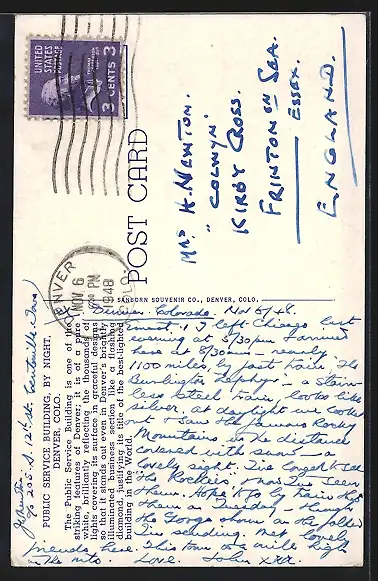 UNITED
STATES
POSTAGE
3 CENTS 3
DENVER
NOV 6
PM
1948
COLO.
POST CARD
Mrs H. Newton.
"Colwyn"
Kirby Cross.
Frinton on Sea.
Essex.
England.
SANBORN SOUVENIR CO., DENVER, COLO.
PUBLIC SERVICE BUILDING, BY NIGHT,
DENVER, COLO.
The Public Service Building is one of the
striking features of Denver; it is of a pure
white, brilliantly reflecting the thousands of
lights covering its surface in graceful designs
so that it stands out even in Denver's brightly
illuminated business section like a flashing
diamond, justifying its title of the best-lighted
building in the World.
Denver. Colorado. Nov 6/48.
I left Chicago last
evening at 5/30pm & arrived
here at 8/30am - nearly
1100 miles, by fast train, The
Burlington Zephyr - a stain-
less steel train, looks like
silver, at daylight we looked
out & saw the famous Rocky
Mountains in the distance
covered with snow - a
lovely sight. I've longed to see
the Rockies & now I've seen
them. Hope to go by train thro
them on Tuesday, through
the Gorge shown on the folder
I'm sending. Met lovely
friends here. This town is a mile high
in the mts. Love. John xxx
J. Newton
c/o 255 - S 12th St.